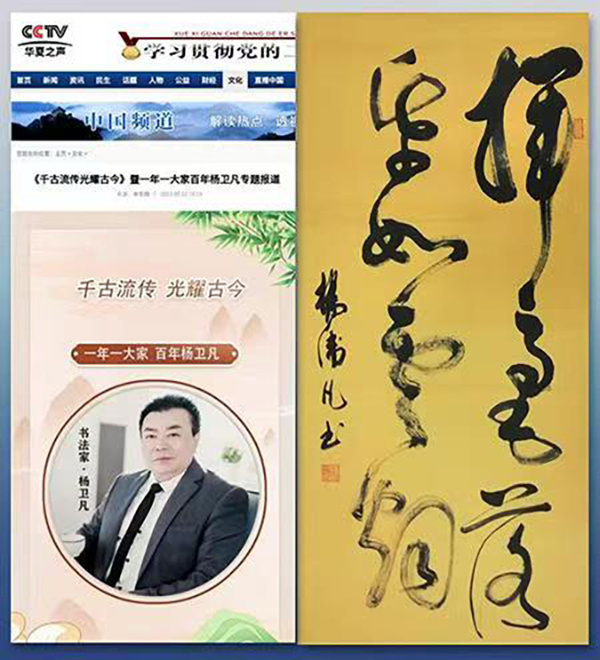 CCTV
华夏之声
XUE XI GUAN CHE DANG DE ER S
学习贯彻党的二
首页 新闻 资讯 民生 话题 人物 公益 财经 文化 直播中国
中国频道 解读热点 透
《千古流传光耀古今》暨一年一大家百年杨卫凡专题报道
千古流传 光耀古今
一年一大家 百年杨卫凡
书法家·杨卫凡
揮毫落
紙如雲烟
楊衛凡书